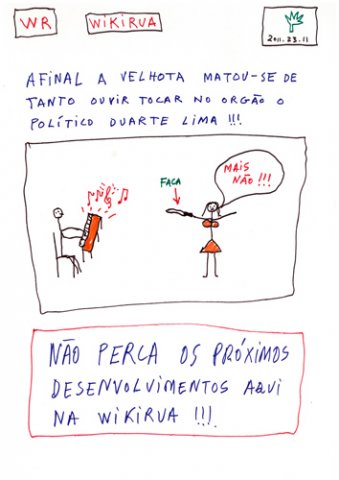 WR
WIKIRUA
2011.23.11
AFINAL A VELHOTA MATOU-SE DE
TANTO OUVIR TOCAR NO ORGÃO O
POLÍTICO DUARTE LIMA !!!
FACA
MAIS
NÃO !!!
NÃO PERCA OS PRÓXIMOS
DESENVOLVIMENTOS AQUI
NA WIKIRUA !!!